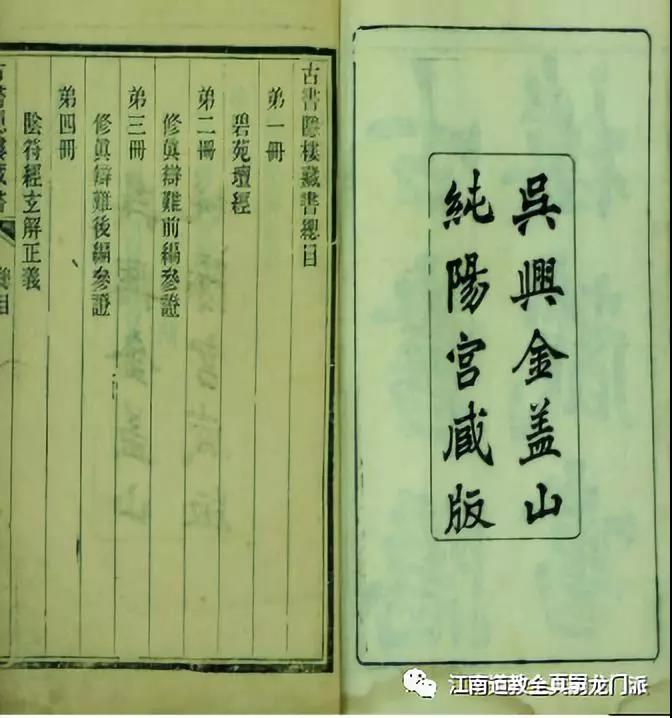 吳興金盖山
純陽宮咸版
古書隱樓藏書總目
弟一冊
碧苑壇經
弟二冊
修眞辯難前編參證
弟三冊
修眞辯難後編參證
弟四冊
陰符經玄解正義
古書隱樓藏書 總目
江南道教全真龙门派